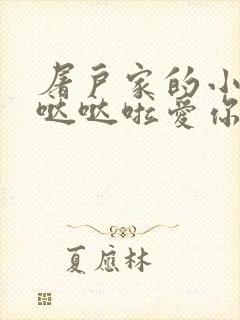 屠户家的小
哒哒啦爱你
夏应林